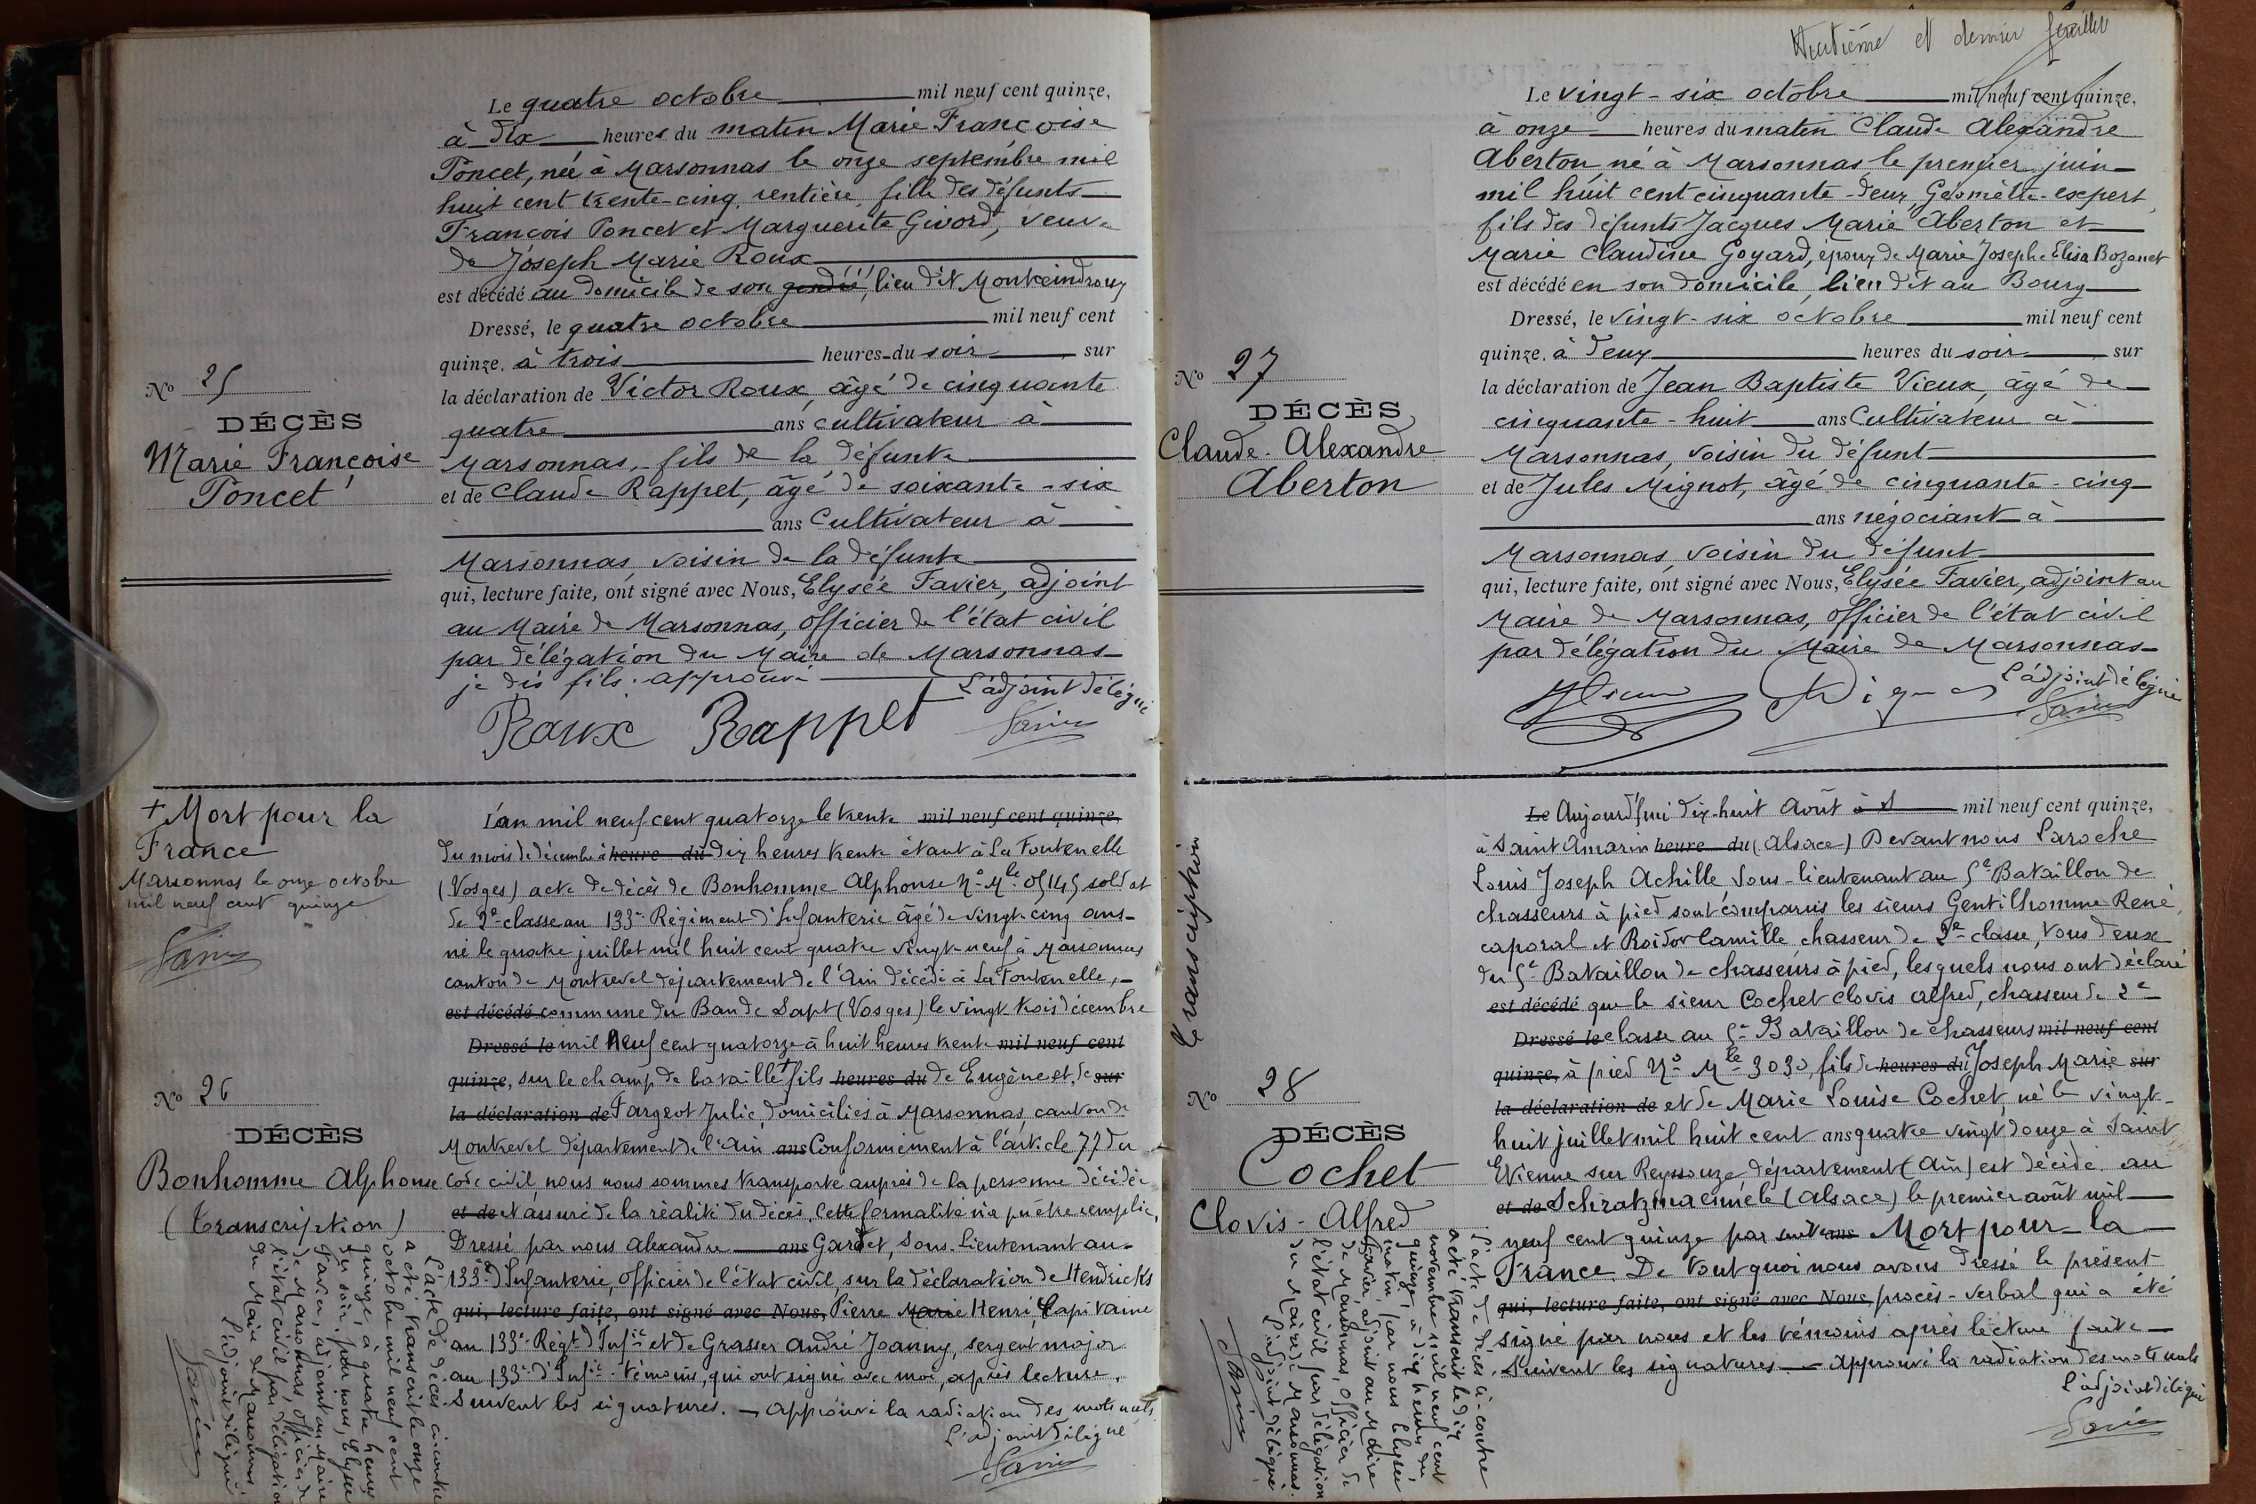 Le quatre octobre mil neuf cent quinze,
à dix heures du matin Marie Françoise
Poncet, née à Marsonnas le onze septembre mil
huit cent trente-cinq, rentière, fille des défunts
François Poncet et Marguerite Givord, veuve
de Joseph Marie Roux
est décédé au domicile de son gendre, lieu dit Monteindroux
Dressé, le quatre octobre mil neuf cent
quinze, à trois heures du soir sur
la déclaration de Victor Roux, âgé de cinquante
quatre ans cultivateur à
Marsonnas, fils de la défunte
et de Claude Rappet, âgé de soixante-six
ans Cultivateur à
Marsonnas voisin de la défunte
qui, lecture faite, ont signé avec Nous, Elysée Favier, adjoint
au Maire de Marsonnas, officier de l'état civil
par délégation du Maire de Marsonnas
je dis fils. approuvé
L'adjoint délégué
Roux Rappet Favier
No 25
DÉCÈS
Marie Françoise
Poncet
+ Mort pour la
France
Marsonnas le onze octobre
mil neuf cent quinze
Favier
L'an mil neuf cent quatorze le trente mil neuf cent quinze,
du mois de décembre à heure du dix heures trente étant à La Fontenelle
(Vosges) acte de décès de Bonhomme Alphonse No Mle 05145 soldat
de 2e classe au 133e Régiment d'Infanterie âgé de vingt cinq ans
né le quatre juillet mil huit cent quatre vingt neuf à Marsonnas
canton de Montrevel département de l'Ain décédé à La Fontenelle,
est décédé commune du Ban de Sapt (Vosges) le vingt trois décembre
Dressé le mil neuf cent quatorze à huit heures trente mil neuf cent
quinze, sur le champ de bataille + fils heures du de Eugène et de sur
la déclaration de Fargeot Julie, domiciliés à Marsonnas, canton de
Montrevel département de l'Ain ans Conformément à l'article 77 du
Code civil, nous nous sommes transporté auprès de la personne décédée
et de et assuré de la réalité du décès. Cette formalité n'a pu être remplie.
Dressé par nous Alexandre ans Gardet, Sous-Lieutenant au
133e d'Infanterie, officier de l'état civil, sur la déclaration de Hendricks
qui, lecture faite, ont signé avec Nous, Pierre Marie Henri, Capitaine
au 133e Régt d'Infie et de Grasser André Joanny, sergent major
au 133e d'Infie témoins, qui ont signé avec moi, après lecture.
Suivent les signatures. — Approuvé la radiation des mots nuls
L'adjoint délégué
Favier
No 26
DÉCÈS
Bonhomme Alphonse
(Transcription)
L'acte de décès ci-contre
a été transcrit le onze
octobre mil neuf cent
quinze, à quatre heures
du soir, par nous, Elysée
Favier, adjoint au Maire
de Marsonnas, officier de
l'état civil par délégation
du Maire de Marsonnas
L'adjoint délégué
Favier
Huitième et dernier feuillet
Le vingt-six octobre mil neuf cent quinze,
à onze heures du matin Claude Alexandre
Aberton né à Marsonnas, le premier juin
mil huit cent cinquante-deux, Géomètre-expert
fils des défunts Jacques Marie Aberton et
Marie Claudine Goyard, époux de Marie Josephe Elisa Bozonet
est décédé en son domicile, lieu dit au Bourg
Dressé, le vingt-six octobre mil neuf cent
quinze, à deux heures du soir sur
la déclaration de Jean Baptiste Vieux, âgé de
cinquante-huit ans Cultivateur à
Marsonnas, voisin du défunt
et de Jules Mignot, âgé de cinquante-cinq
ans négociant à
Marsonnas, voisin du défunt
qui, lecture faite, ont signé avec Nous, Elysée Favier, adjoint au
Maire de Marsonnas, officier de l'état civil
par délégation du Maire de Marsonnas
L'adjoint délégué
Vieux Mignot Favier
No 27
DÉCÈS
Claude-Alexandre
Aberton
Le Aujourd'hui dix-huit Août à mil neuf cent quinze,
à Saint Amarin heure du (Alsace) Devant nous Laroche
Louis Joseph Achille Sous-lieutenant au 5e Bataillon de
chasseurs à pied sont comparus les sieurs Gentilhomme René,
caporal et Roidor Camille chasseur de 2e classe, tous deux
du 5e Bataillon de chasseurs à pied, lesquels nous ont déclaré
est décédé que le sieur Cochet Clovis Alfred, chasseur de 2e
Dressé le classe au 5e Bataillon de chasseurs mil neuf cent
quinze, à pied No Mle 3030, fils de heures du Joseph Marie sur
la déclaration de et de Marie Louise Cochet, né le vingt-
huit juillet mil huit cent ans quatre vingt douze à Saint
Etienne sur Reyssouze département (Ain) est décédé au
et de Schratzmaennelé (Alsace) le premier août mil
neuf cent quinze par suite ans Mort pour la
France. De tout quoi nous avons dressé le présent
qui, lecture faite, ont signé avec Nous, procès-verbal qui a été
signé par nous et les témoins après lecture faite
Suivent les signatures — Approuvé la radiation des mots nuls
L'adjoint délégué
Favier
Transcription
No 28
DÉCÈS
Cochet
Clovis-Alfred
L'acte de décès ci-contre
a été transcrit le dix
novembre mil neuf cent
quinze, à dix heures du
matin, par nous Elysée
Favier, adjoint au Maire
de Marsonnas, officier de
l'état civil par délégation
du Maire de Marsonnas.
L'adjoint délégué
Favier